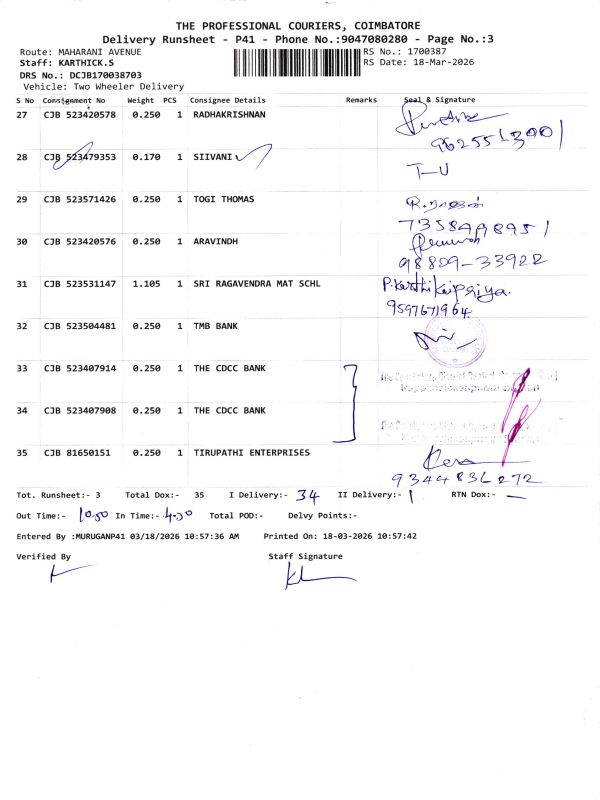 THE PROFESSIONAL COURIERS, COIMBATORE
Delivery Runsheet - P41 - Phone No.:9047080280 - Page No.:3
Route: MAHARANI AVENUE RS No.: 1700387
Staff: KARTHICK.S RS Date: 18-Mar-2026
DRS No.: DCJB170038703
Vehicle: Two Wheeler Delivery
S No Consignment No Weight PCS Consignee Details Remarks Seal & Signature
27 CJB 523420578 0.250 1 RADHAKRISHNAN
28 CJB 523479353 0.170 1 SIIVANI T-U
29 CJB 523571426 0.250 1 TOGI THOMAS
30 CJB 523420576 0.250 1 ARAVINDH
98809-33922
31 CJB 523531147 1.105 1 SRI RAGAVENDRA MAT SCHL P.Karthikaipriya.
9597671964
32 CJB 523504481 0.250 1 TMB BANK
33 CJB 523407914 0.250 1 THE CDCC BANK
34 CJB 523407908 0.250 1 THE CDCC BANK
35 CJB 81650151 0.250 1 TIRUPATHI ENTERPRISES
9344836272
Tot. Runsheet:- 3 Total Dox:- 35 I Delivery:- 34 II Delivery:- 1 RTN Dox:- —
Out Time:- 10.50 In Time:- 4-30 Total POD:- Delvy Points:-
Entered By :MURUGANP41 03/18/2026 10:57:36 AM Printed On: 18-03-2026 10:57:42
Verified By Staff Signature